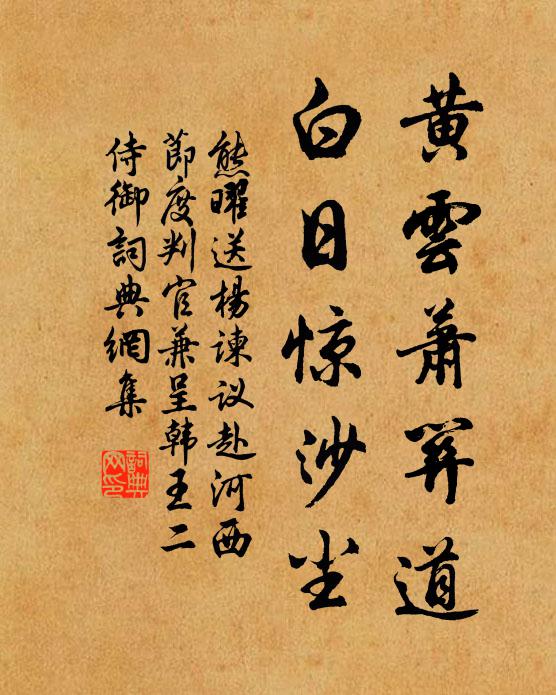 黄雲蕭関道
白日惊沙尘
熊曜送楊諫议赴河西
節度判官兼呈韩王二
侍御詞典網集
詞典
网印